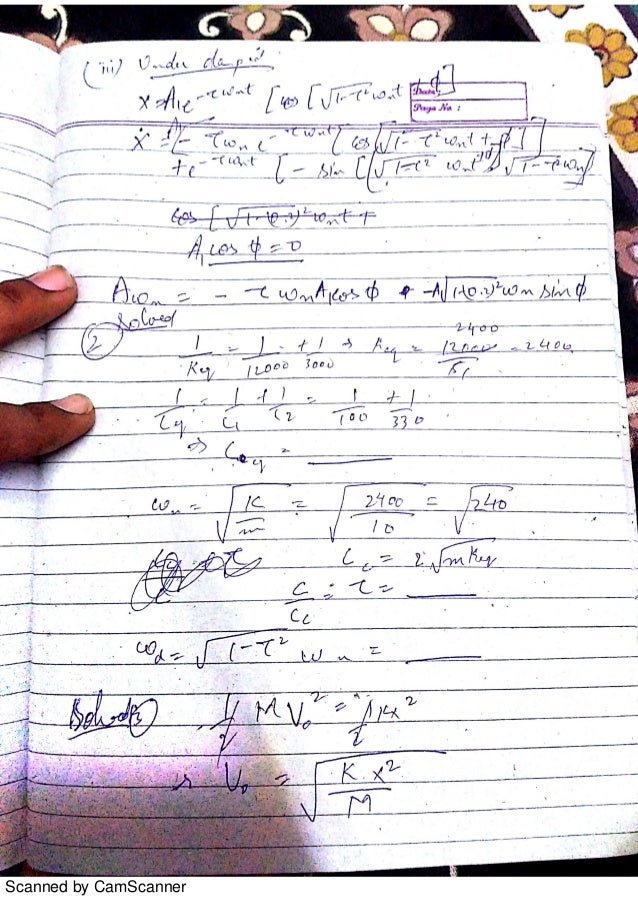 (iii) Under damped
x = A₁e^(-τωnt) [cos [√(1-τ²) ωnt + ϕ]
Date:
Page No :
ẋ = A₁[- τωn e^(-τωnt) [cos[√(1-τ²) ωnt + ϕ]]
+ e^(-τωnt) [- sin [(√(1-τ²) ωnt + ϕ)] √(1-τ²) ωn]
cos [√(1-(0.2)² ωnt +
A₁ cos ϕ = 0
Aωn = - τ ωn A₁ cos ϕ + -A₁√(1-(0.2)² ωn sin ϕ
Solved
② 1/Keq = 1/12000 + 1/3000 ⇒ Keq = 12000/5 = 2400
2400
1/Ceq = 1/C₁ + 1/C₂ = 1/100 + 1/330
⇒ Ceq = ______
ωn = √(K/m) = √(2400/10) = √240
Cc = 2√(mKeq)
C/Cc = τ = ______
ωd = √(1-τ²) ωn = ______
Solved 3 1/2 MV₀² = 1/2 Kx²
⇒ V₀ = √(K x²/M)
Scanned by CamScanner